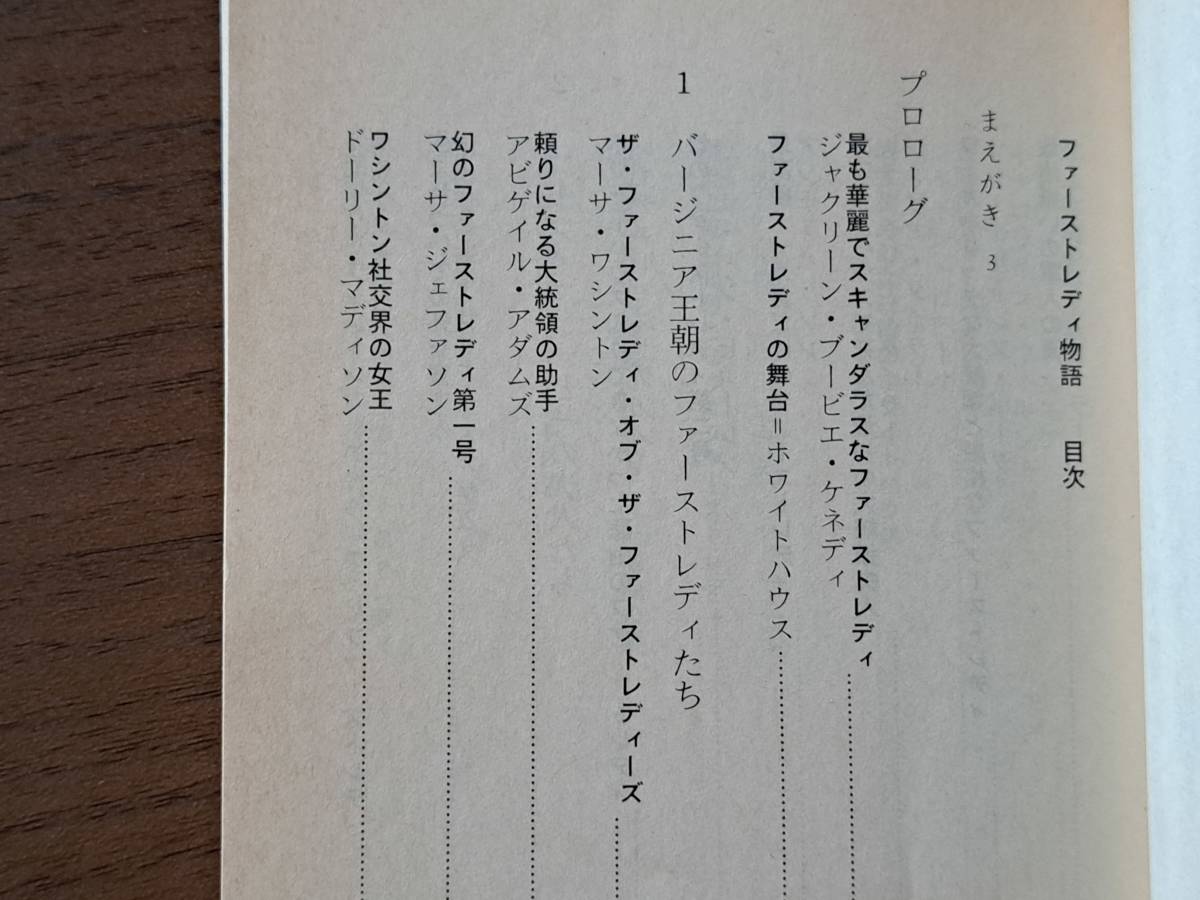 ファーストレディ物語　目次
まえがき 3
プロローグ
最も華麗でスキャンダラスなファーストレディ
ジャクリーン・ブービエ・ケネディ
ファーストレディの舞台＝ホワイトハウス
1　バージニア王朝のファーストレディたち
ザ・ファーストレディ・オブ・ザ・ファーストレディーズ
マーサ・ワシントン
頼りになる大統領の助手
アビゲイル・アダムズ
幻のファーストレディ第一号
マーサ・ジェファソン
ワシントン社交界の女王
ドーリー・マディソン